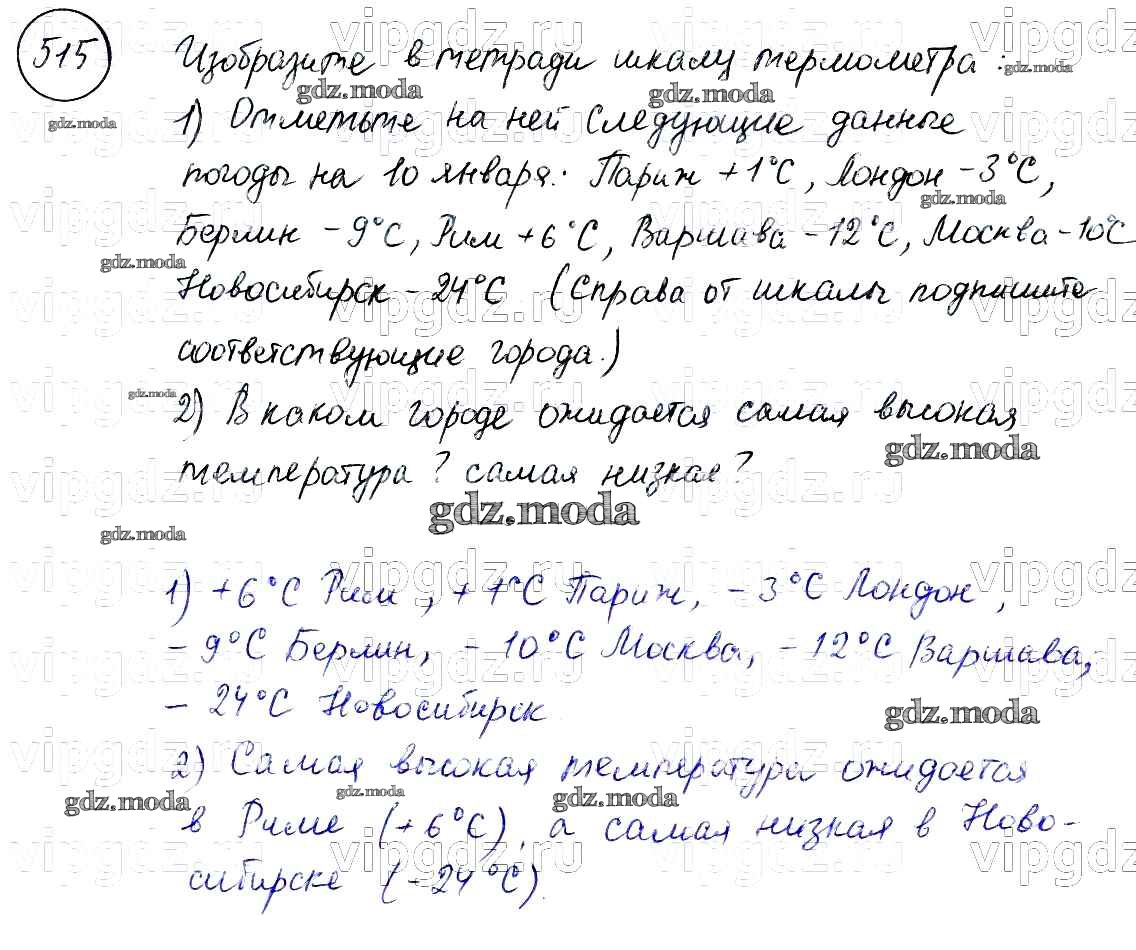 515
Изобразите в тетради шкалу термометра:
1) Отметьте на ней следующие данные
погоды на 10 января: Париж +1°С, Лондон -3°С,
Берлин -9°С, Рим +6°С, Варшава -12°С, Москва -10°С
Новосибирск -24°С (Справа от шкалы подпишите
соответствующие города.)
2) В каком городе ожидается самая высокая
температура? самая низкая?
1) +6°С Рим, +1°С Париж, -3°С Лондон,
-9°С Берлин, -10°С Москва, -12°С Варшава,
-24°С Новосибирск
2) Самая высокая температура ожидается
в Риме (+6°С), а самая низкая в Ново-
сибирске (-24°С).
gdz.moda
vipgdz.ru